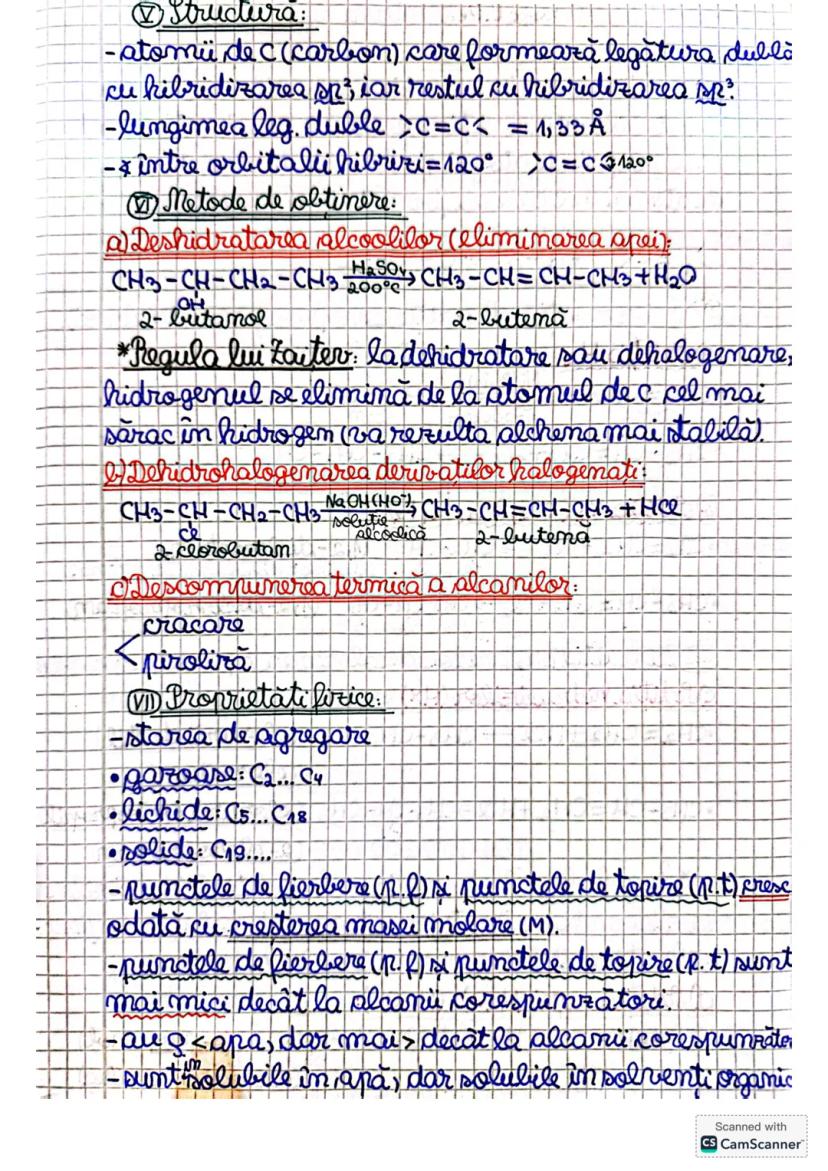 V Structură:
- atomii de C (carbon) care formează legătura dublă
cu hibridizarea sp², iar restul cu hibridizarea sp³.
- lungimea leg. duble >C=C< = 1,33 Å
- ∢ între orbitalii hibrizi = 120° >C=C 120°
VI Metode de obtinere:
a) Deshidratarea alcoolilor (eliminarea apei):
CH3-CH-CH2-CH3 H2SO4 200°C → CH3-CH=CH-CH3 + H2O
OH
2-butanol 2-butenă
*Regula lui Zaitev: la dehidratare sau dehalogenare,
hidrogenul se elimină de la atomul de C cel mai
sărac în hidrogen (va rezulta alchena mai stabilă).
b) Dehidrohalogenarea derivaților halogenati:
CH3-CH-CH2-CH3 NaOH (HO⁻) soluție alcoolică → CH3-CH=CH-CH3 + HCl
Cl
2-clorobutan 2-butenă
c) Descompunerea termică a alcanilor:
cracare
<
piroliză
VII Proprietăti fizice:
- starea de agregare
• gazoase: C2... C4
• lichide: C5... C18
• solide: C19....
- punctele de fierbere (p.f) și punctele de topire (p.t) cresc
odată cu creșterea masei molare (M).
- punctele de fierbere (p.f) și punctele de topire (p.t) sunt
mai mici decât la alcanii corespunzători.
- au ρ < apa, dar mai > decât la alcanii corespunzăto
- sunt insolubile în apă, dar solubile în solvenți organic
Scanned with
CS CamScanner